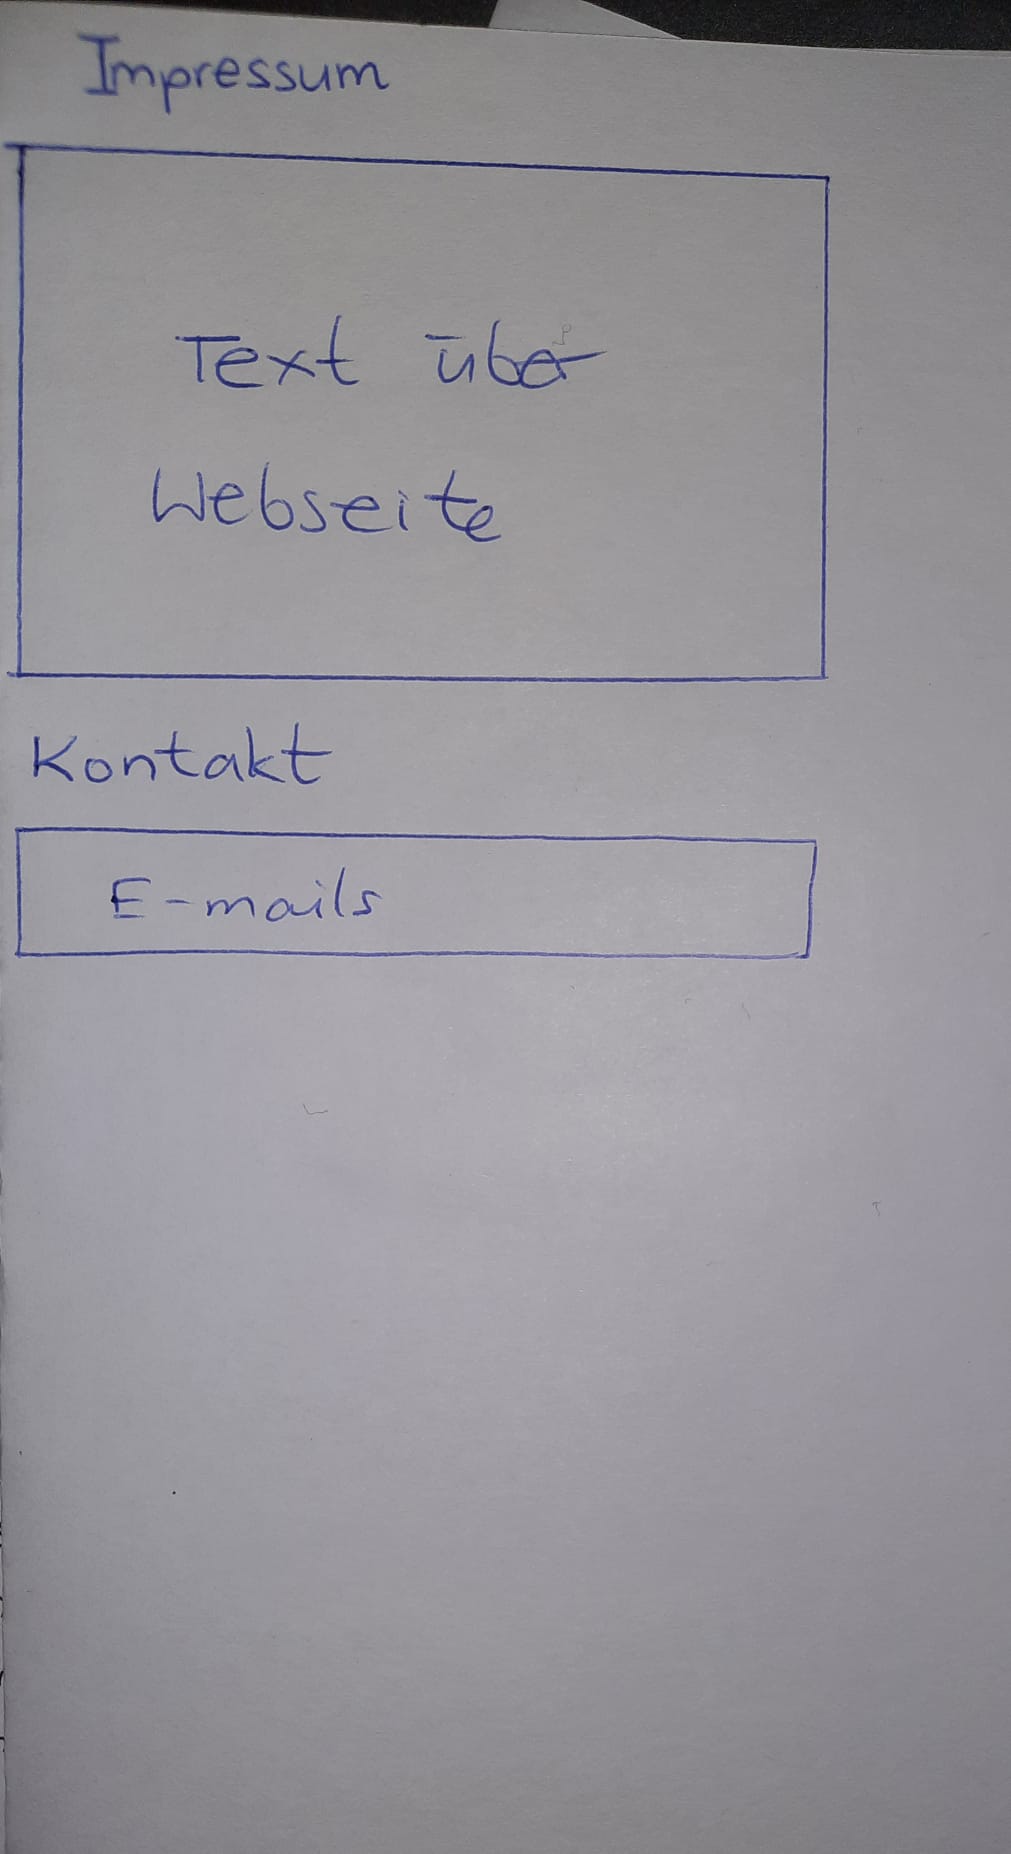 Impressum
Text über
Webseite
Kontakt
E-mails